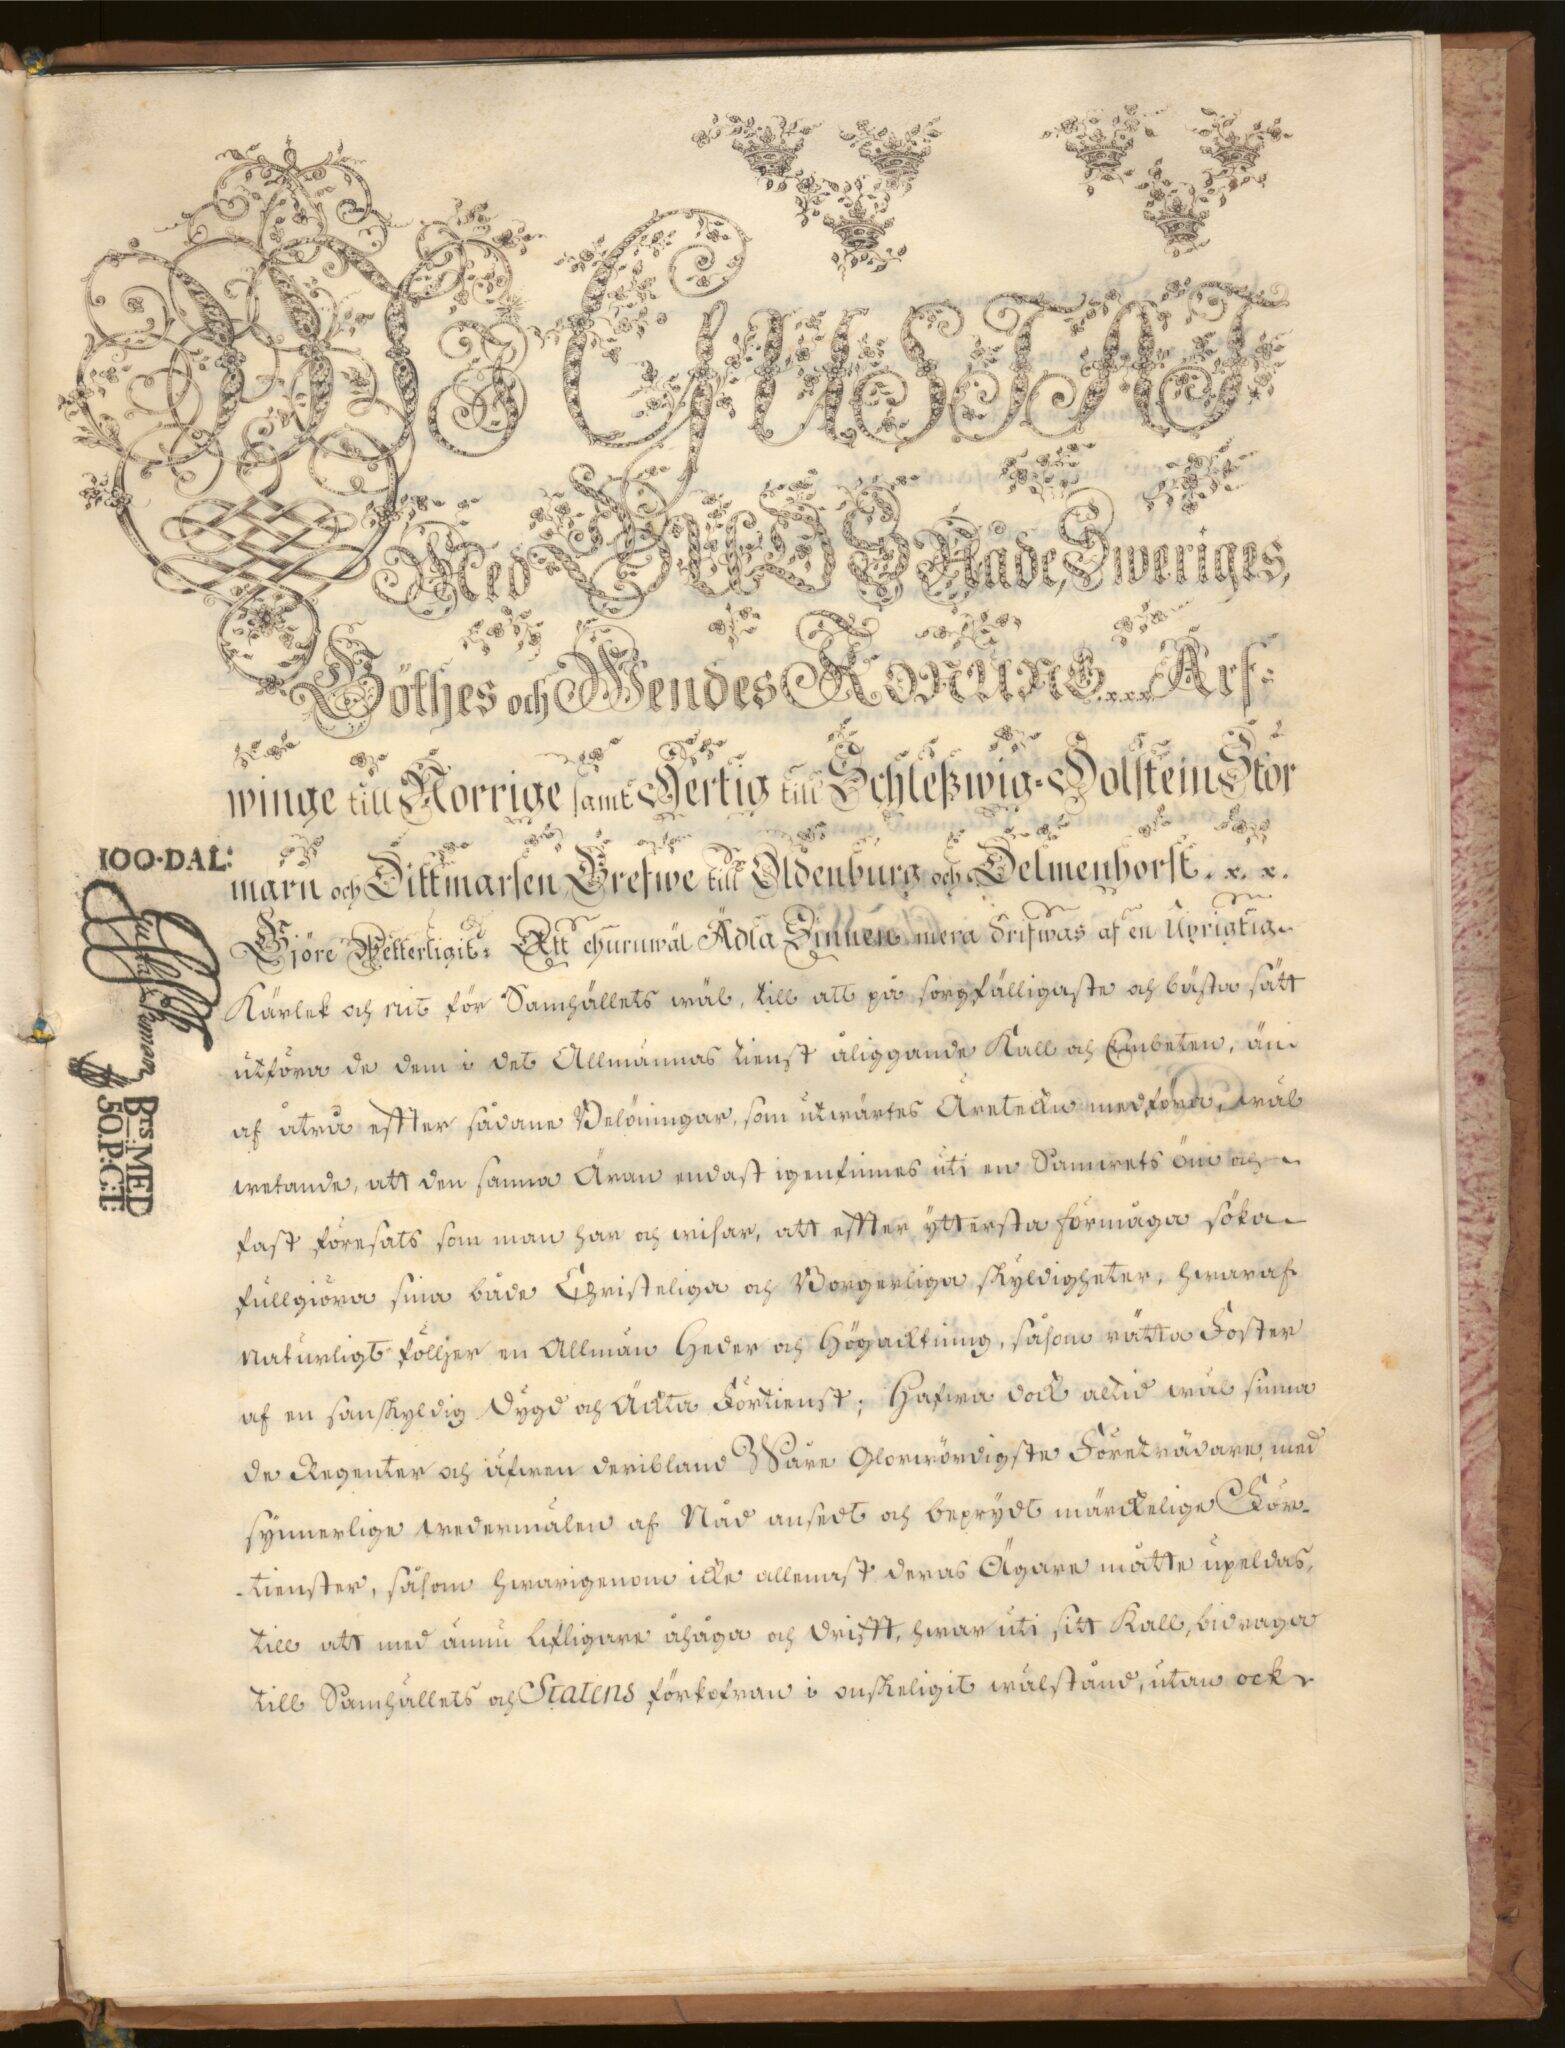 Wi GUSTAF
Med GUDS Nåde, Sweriges,
Göthes och Wendes KONUNG x.x.x. Arf=
winge till Norrige samt Hertig till Schleßwig-Holstein Stor
marn och Dittmarsen, Grefwe till Oldenburg och Delmenhorst. x. x.
Giöre Wetterligit: Att ehuruwäl Ädla Sinnen mera drifwas af en Uprigtig
Kärlek och nit för Samhällets wäl, till att på sorgfälligaste och bästa sätt
utföra de dem i det Allmännas tienst åliggande Kall och Embeten, än
af åtrå effter sådane Belöningar, som utwärtes Äretecken medföra, wäl
wetande, att den sanna Äran endast igenfinnes uti en Samwets öm och
fast föresats som man har och wisar, att effter yttersta förmåga söka
fullgiöra sina både Christeliga och Borgerliga skyldigheter, hwaraf
naturligt fölljer en Allmän Heder och Högacktning, såsom rätta Foster
af en sanskyldig Dygd och Äckta Förtienst; Hafwa dock altid wäl sinna
de Regenter och äfwen deribland Wåre Glorwördigste Företrädare, med
synnerlige wedermälen af Nåd ansedt och beprydt märckelige För-
-tienster, såsom hwarigenom icke allenast deras Ägare måtte upeldas,
till att med ännu lifligare åhåga och drifft, hwar uti sitt Kall, bidraga
till Samhällets och Statens förkofran i önskeligit wälstånd, utan ock
100·DAL:
Charta
Brs. MED
50.P:C:T: